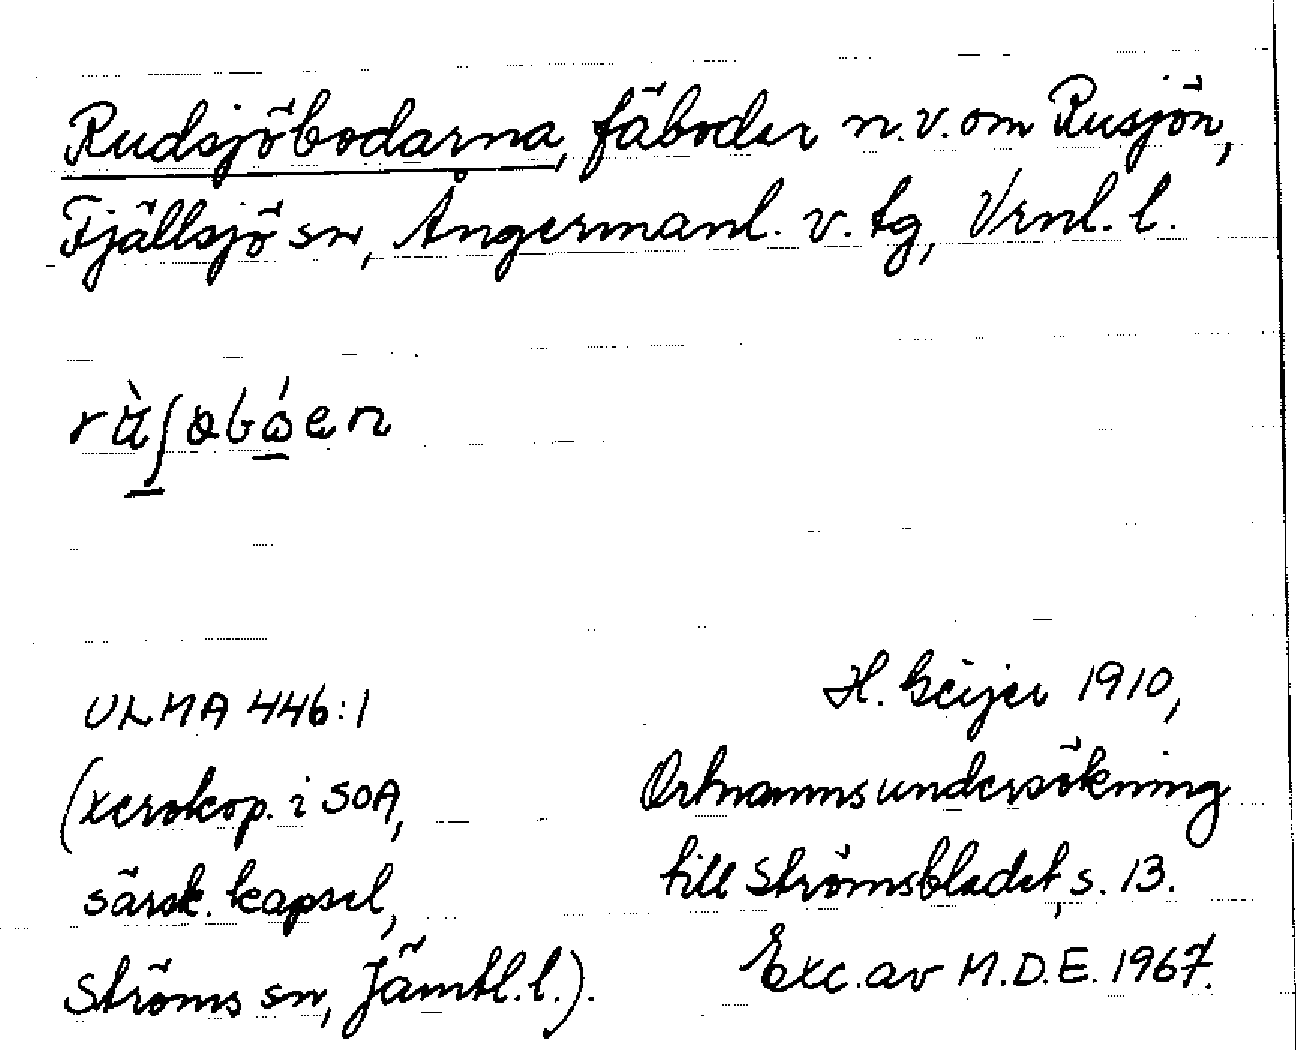 Rudsjöbodarna, fäboder n.v. om Rusjön,
Fjällsjö sn, Ångermanl. v. tg, Vrnl. l.
ULMA 446:1
(xerokop. i SOA,
särsk. kapsel,
Ströms sn, Jämtl. l.).
H. Geijer 1910,
Ortnamnsundersökning
till Strömsbladet, s. 13.
Exc. av M.D.E. 1967.